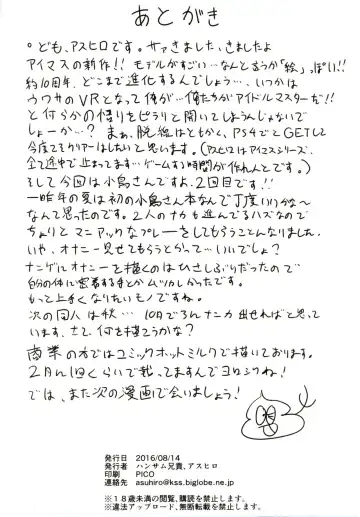 あとがき
ども、アスヒロです。サァきました、きましたよ
アイマスの新作!! モデルがすごい…なんと言うか「絵」っぽい!!
約10周年、どこまで進化するんでしょう…、いつかは
ウワサのVRとなって俺が…俺たちがアイドルマスターだ!!
と何らかの悟りをピラリと開いてしまうんじゃないで
しょーか…? まぁ、脱線はともかく、PS4でとGETして
今度こそクリアーはしたいと思います。(アスヒロはアイマスシリーズ、
全て途中で止まってます…ゲームする時間が作れんとです。)
そして今回は小鳥さんですよ、2回目です!!
一昨年の夏は初の小鳥さん本なんで丁度いいかな〜
なんて思ったのです。2人のナカも進んでるハズなので
ちょっと マニアックなプレーをしてもらうことんなりました。
いや、オナニー見せてもらうとかって…いいでしょ?
ナニゲにオナニーを描くのはひさしぶりだったので
自分の体に密着する手とかムツかしかったです。
もっと上手くなりたいモノですね。
次の同人は秋… 10月でるんナカ 出せればと思って
います、さて、何を描こうかな?
商業の方ではコミックホットミルクで描いております。
2カ月に1回くらいで載ってますんでヨロシクね!
では、また次の漫画で会いましょう!
発行日 2016/08/14
発行者 ハンサム兄貴、アスヒロ
印刷 PICO
連絡先 asuhiro@kss.biglobe.ne.jp
※18歳未満の閲覧、購読を禁止します。
※違法アップロード、無断転載を禁止します。